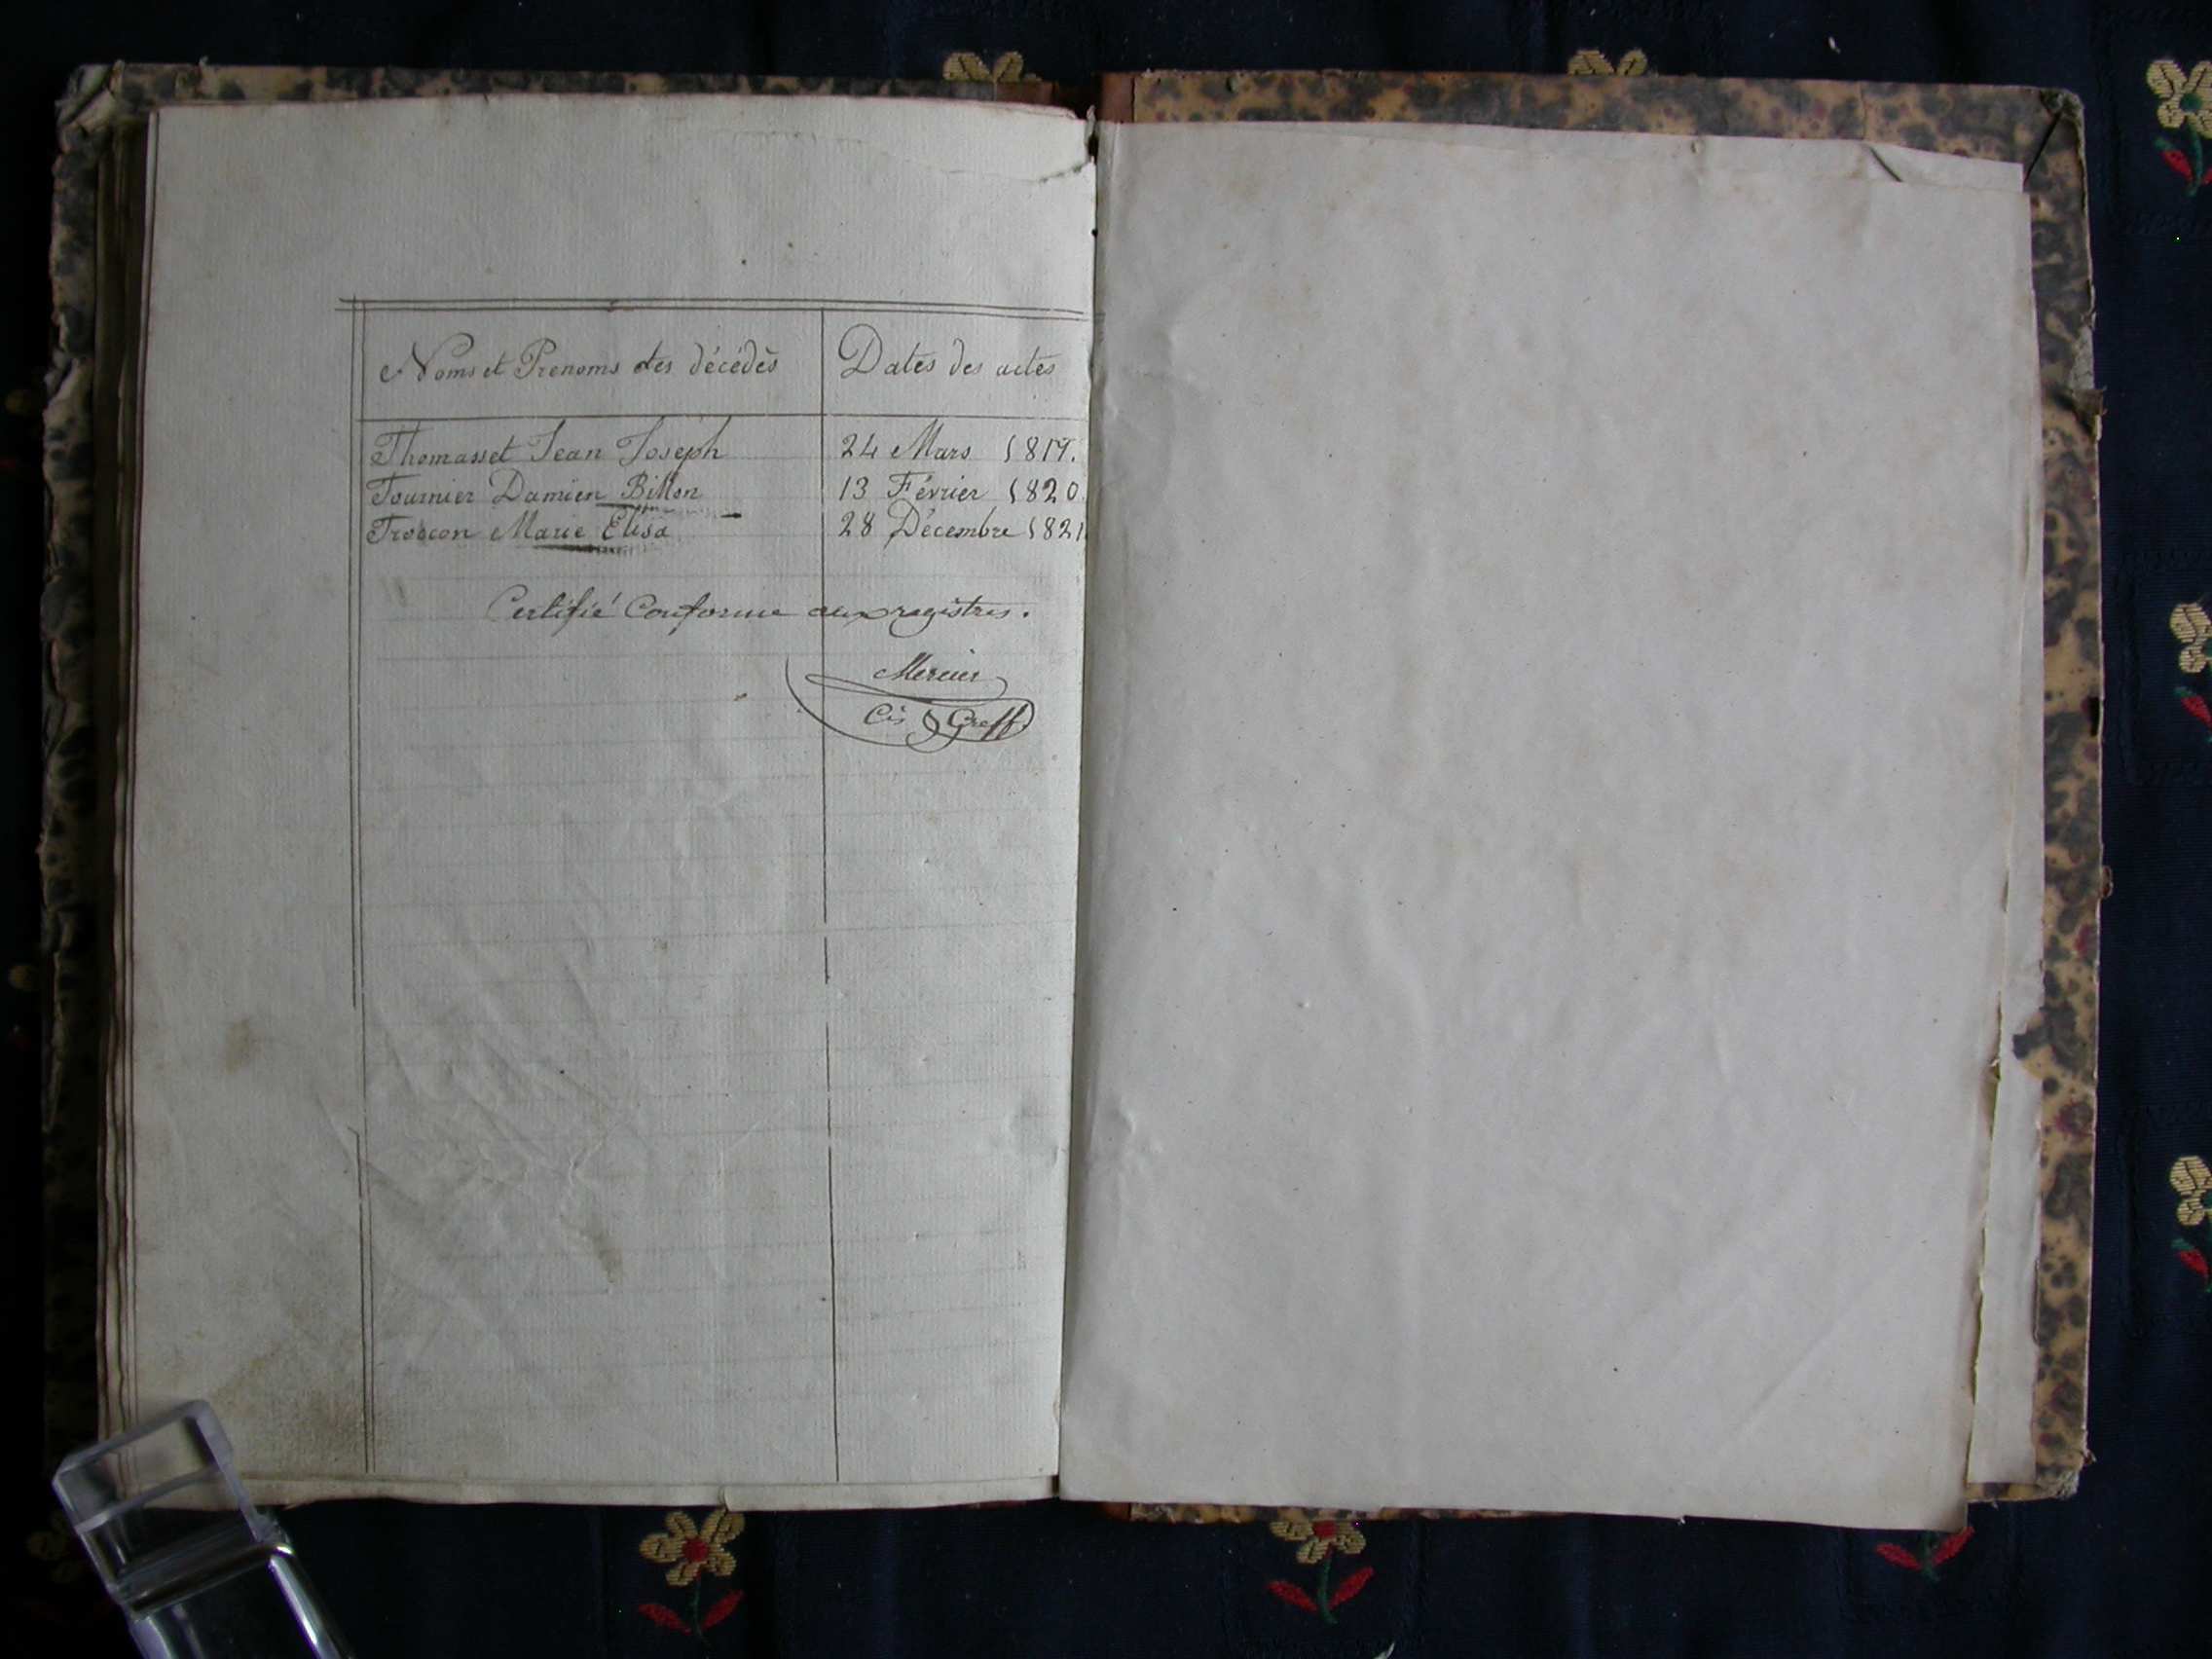 Noms et Prenoms des décédés
Dates des actes
Thomasset Jean Joseph 24 Mars 1819.
Tournier Damien Billon 13 Février 1820.
Troscon Marie Elisa 28 Décembre 1821
Certifié Conforme aux registres.
Mercier
Cis Greff.